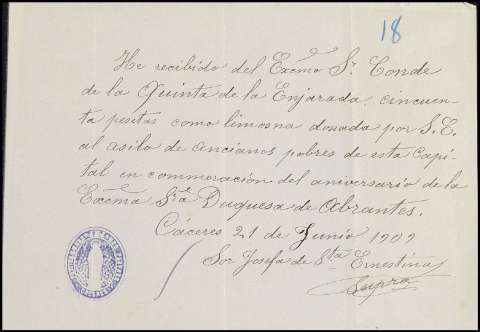 18
He recibido del Excmo Sr. Conde
de la Quinta de la Enjarada, cincuen-
ta pesetas como limosna donada por S.E.
al asilo de ancianos pobres de esta Capi-
tal en conmmoración del aniversario de la
Excma Sra Duquesa de Abrantes.
Cáceres 21 de Junio 1909
Sor Josefa de Sta Ernestina
Supra